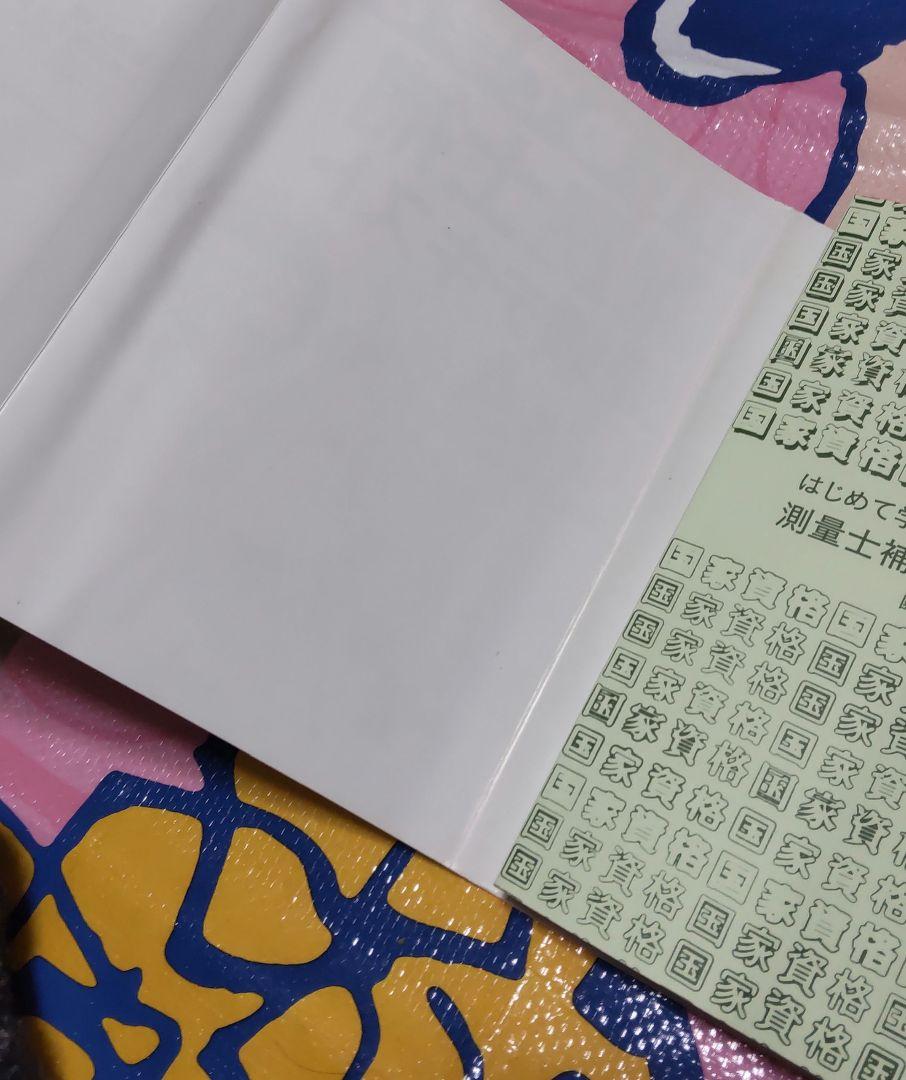 国家
国家資
国家資
国家資
国家資格
国家資格
国家資格
はじめて学
測量士補
国家資格国家
国家資格国家
国家資格国家資
国家資格国家資
国家資格国家資
国家資格国家資格
国家資格国家資格
国家資格国家資格国
国家資格国家資格国